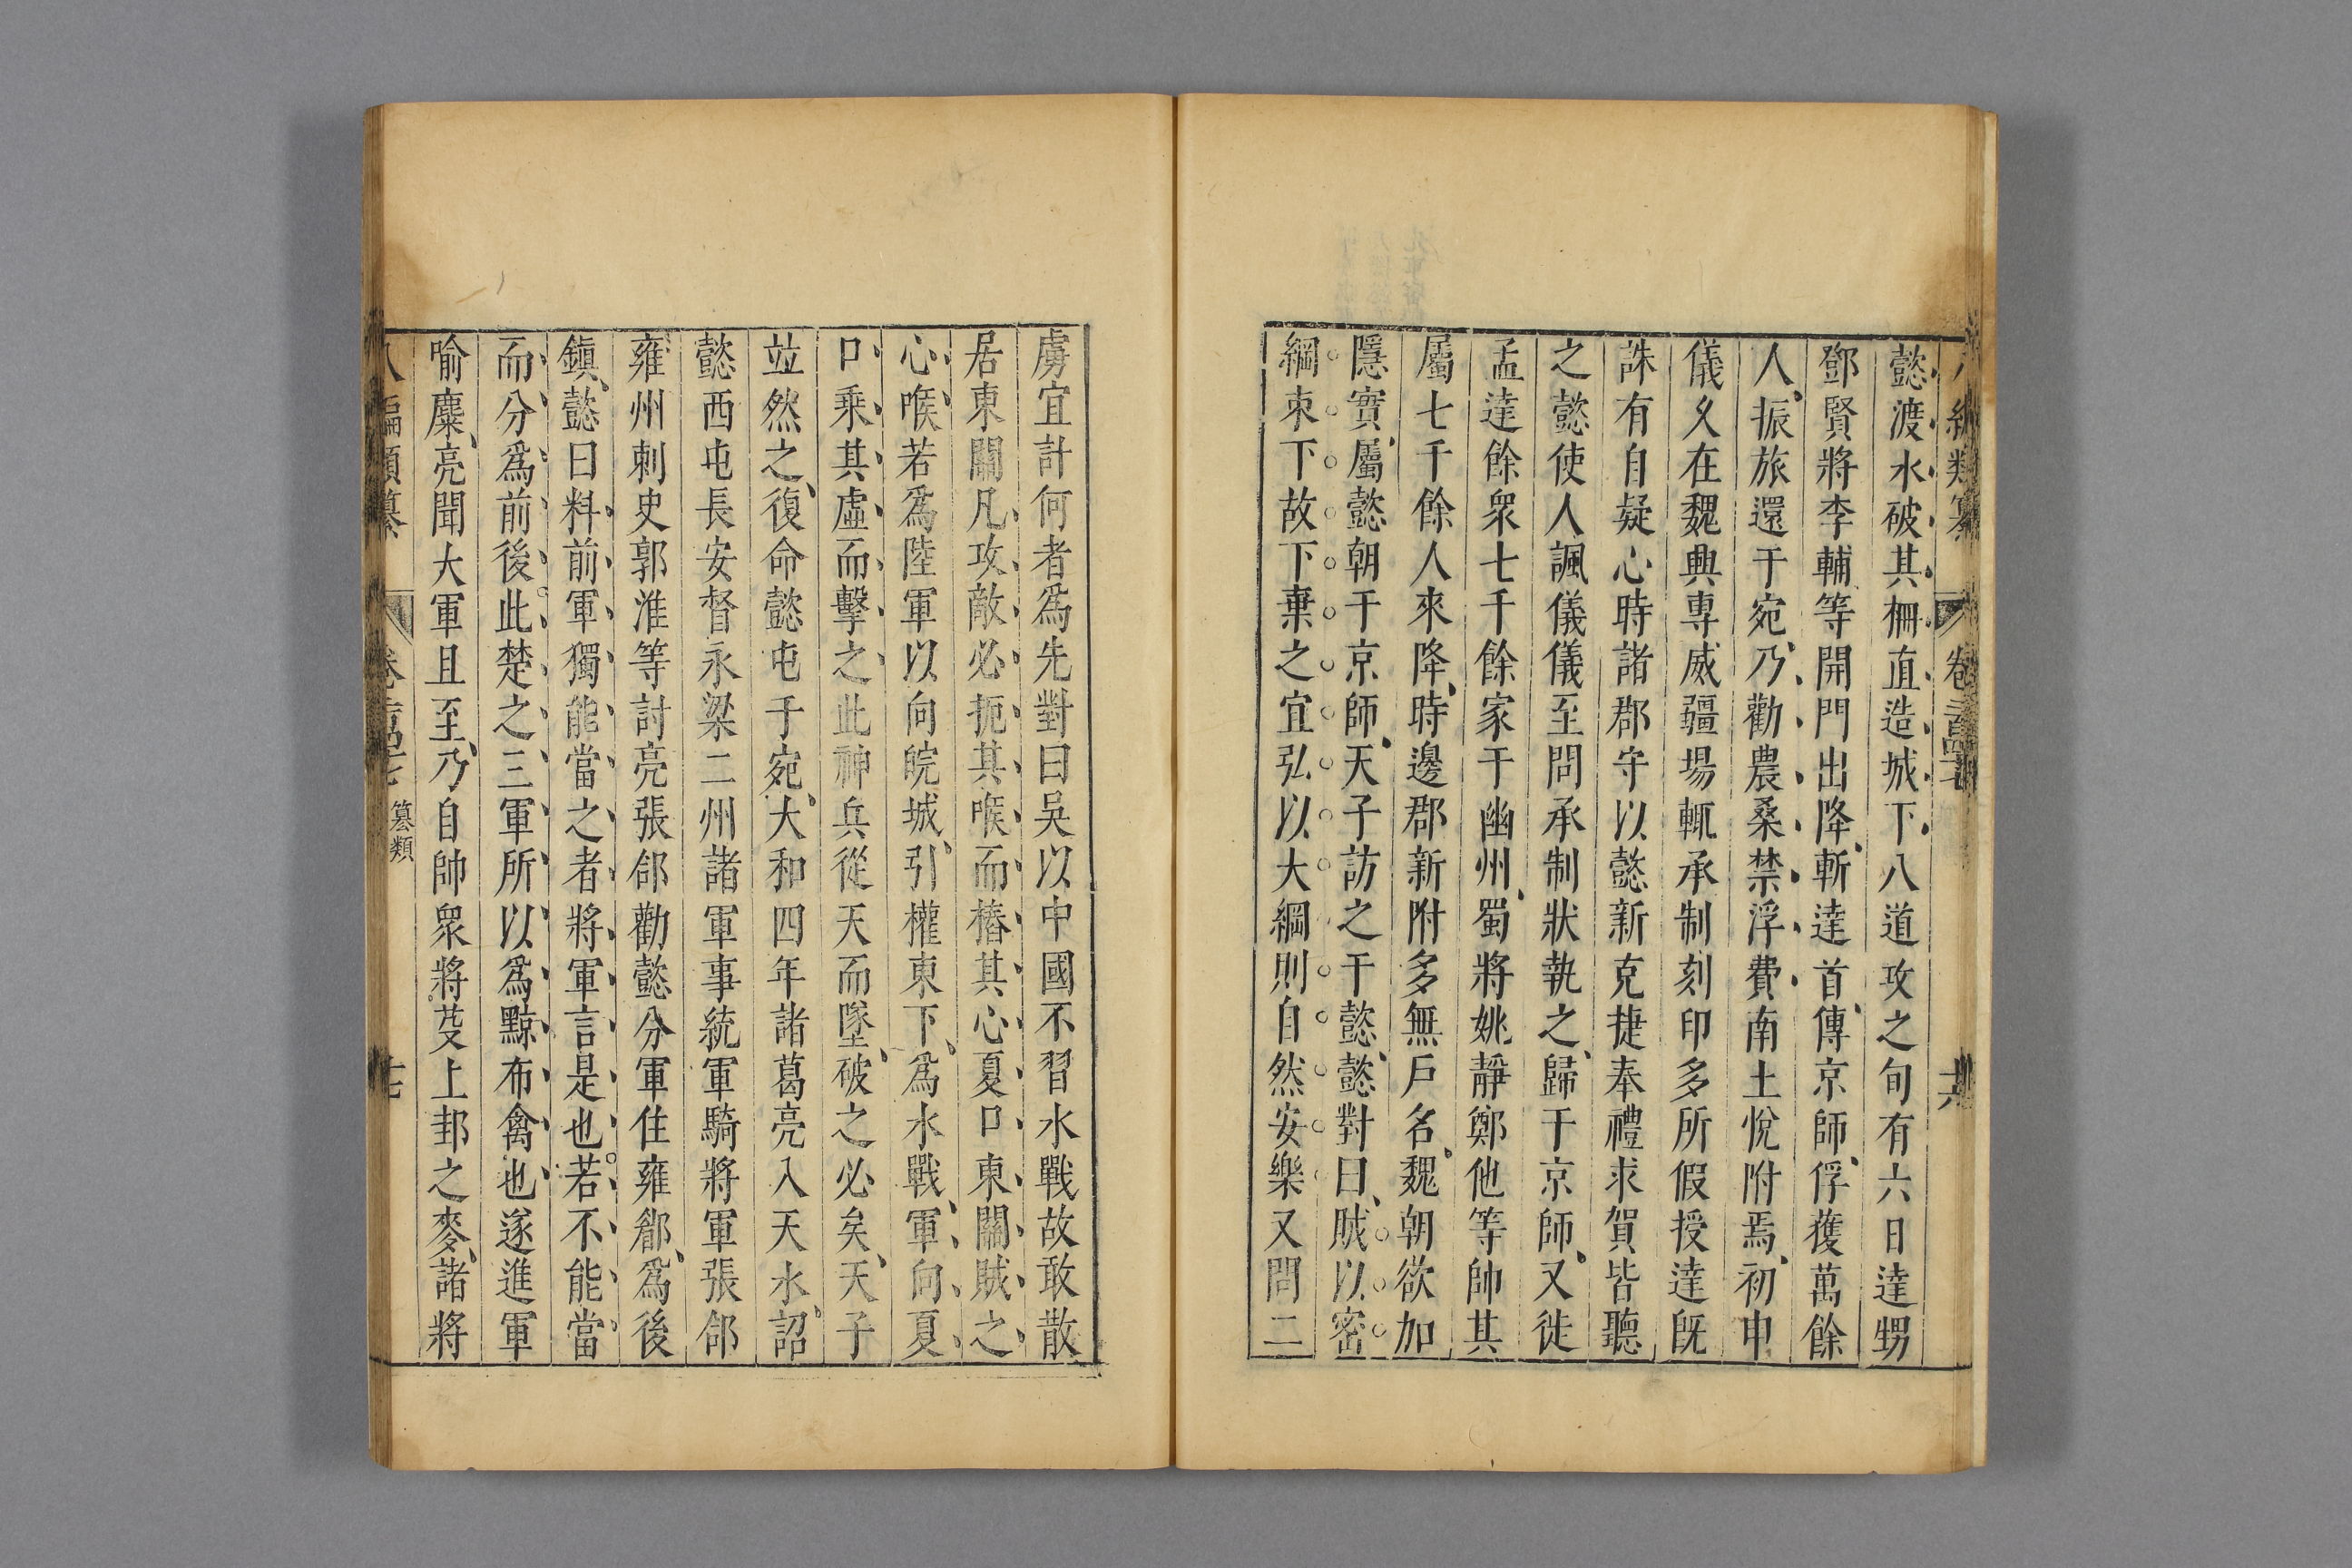 懿渡水破其柵直造城下八道攻之旬有六日達甥
鄧賢將李輔等開門出降斬達首傳京師俘獲萬餘
人振旅還于宛乃勸農桑禁浮費南土悅附焉初申
儀久在魏興專威疆場輒承制刻印多所假授達既
誅有自疑心時諸郡守以懿新克捷奉禮求賀皆聽
之懿使人諷儀儀至問承制狀執之歸于京師又徙
孟達餘衆七千餘家于幽州蜀將姚靜鄭他等帥其
屬七千餘人來降時邊郡新附多無戶名魏朝欲加
隱實屬懿朝于京師天子訪之于懿懿對曰賊以密
綱束下故下棄之宜弘以大綱則自然安樂又問二
虜宜計何者爲先對曰吳以中國不習水戰故敢散
居東關凡攻敵必扼其喉而樁其心夏口東關賊之
心喉若爲陸軍以向皖城引權東下爲水戰軍向夏
口乘其虛而擊之此神兵從天而墜破之必矣天子
竝然之復命懿屯于宛大和四年諸葛亮入天水詔
懿西屯長安督永梁二州諸軍事統軍騎將軍張郃
雍州刺史郭淮等討亮張郃勸懿分軍住雍郿爲後
鎮懿曰料前軍獨能當之者將軍言是也若不能當
而分爲前後此楚之三軍所以爲黥布禽也遂進軍
喻麋亮聞大軍且至乃自帥衆將芟上邽之麥諸將
八編類纂 卷 纂類 十七